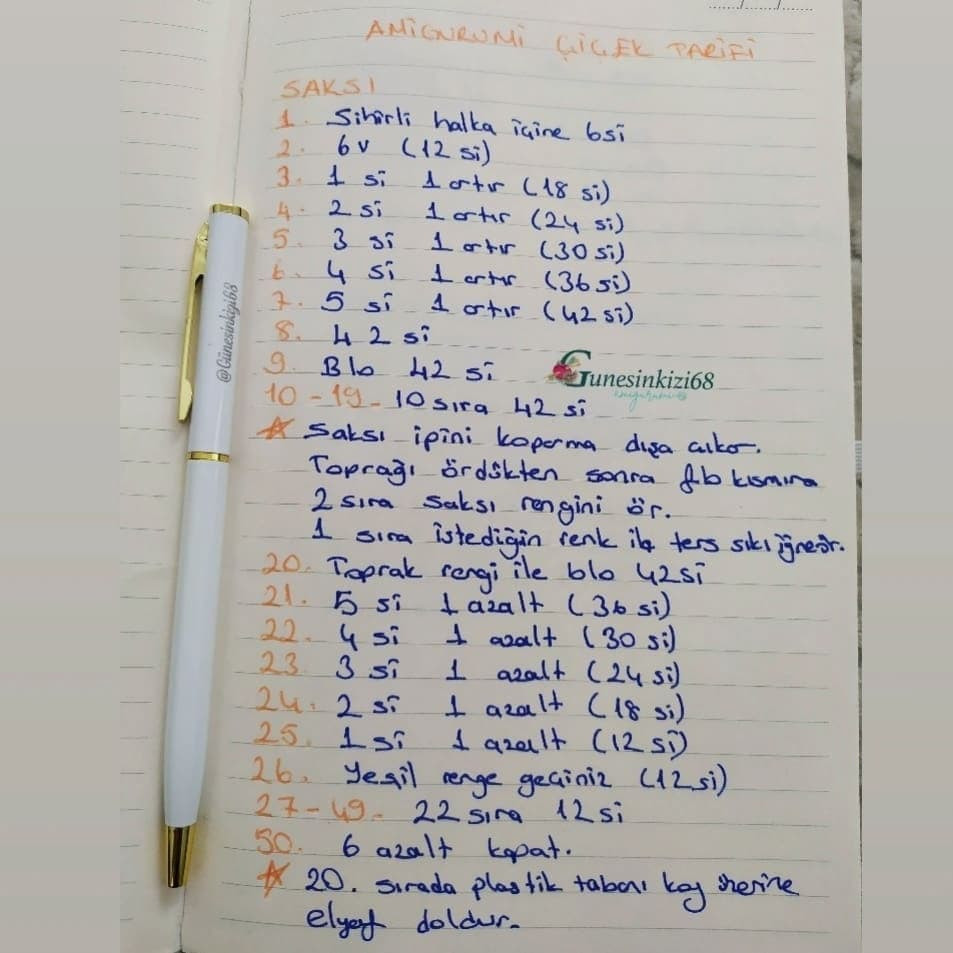 AMİGURUMİ ÇİÇEK TARİFİ
SAKSI
1. Sihirli halka içine 6si
2. 6v (12 si)
3. 1 si 1 artır (18 si)
4. 2 si 1 artır (24 si)
5. 3 si 1 artır (30 si)
6. 4 si 1 artır (36 si)
7. 5 si 1 artır (42 si)
8. 42 si
9. Blo 42 si
10-19- 10 sıra 42 si
☆ Saksı ipini koparma dışa çıkar.
Toprağı ördükten sonra flo kısmına
2 sıra saksı rengini ör.
1 sıra istediğin renk ile ters sık iğnedir.
20. Toprak rengi ile blo 42si
21. 5 si 1 azalt (36 si)
22. 4 si 1 azalt (30 si)
23. 3 si 1 azalt (24 si)
24. 2 si 1 azalt (18 si)
25. 1 si 1 azalt (12 si)
26. Yeşil renge geçiniz (12 si)
27-49- 22 sıra 12 si
50. 6 azalt kapat.
☆ 20. sırada plastik tabanı koy üzerine
elyaf doldur.
@Günesinkizi68
Gunesinkizi68
amigurumi